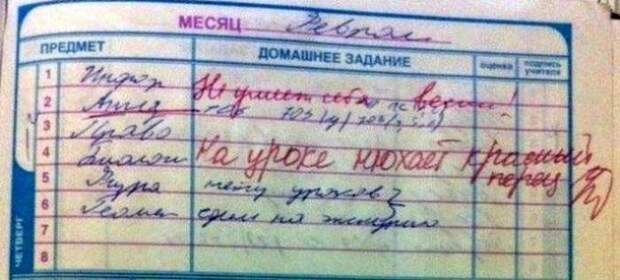 МЕСЯЦ Февраль
ПРЕДМЕТ ДОМАШНЕЕ ЗАДАНИЕ оценка подпись учителя
1 Инфор Не умеет себя вести!
2 Англ
3 Право
4 Биолог На уроке нюхает красный
перец
5 нету уроков
6 Геомет
7
8
ЧЕТВЕРГ